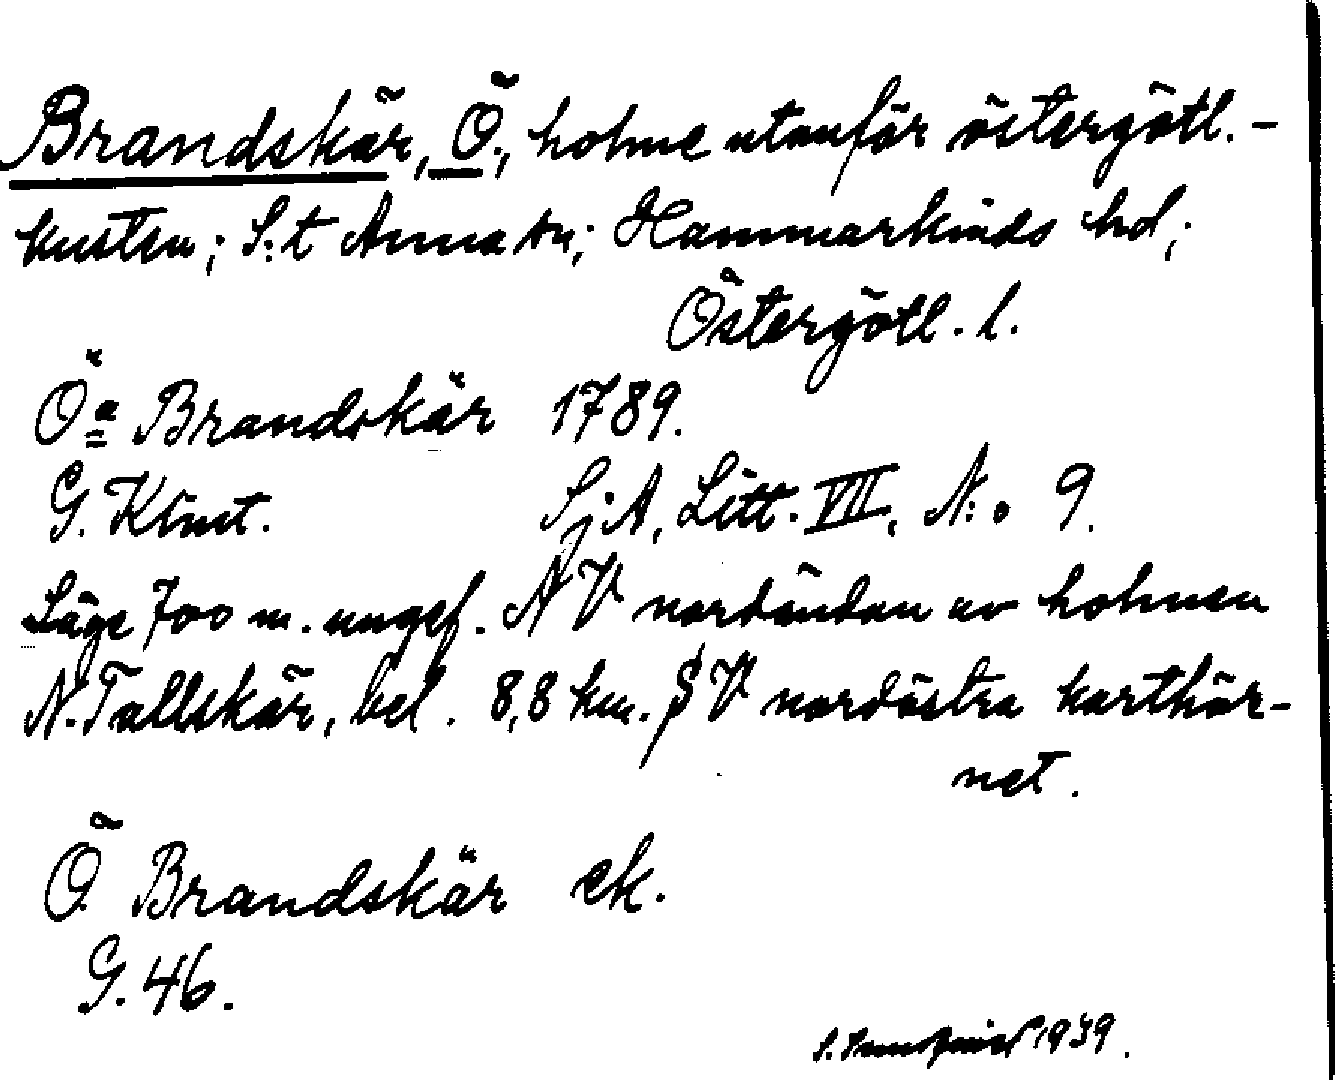 Brandskär, Ö., holme utanför östergötl.-
kusten; S:t Anna sn; Hammarkinds hd;
Östergötl. l.
Öa Brandskär 1789.
G. Klint. SjA, Litt. VII, N:o 9.
Läge 700 m. ungef. NV nordändan av holmen
N. Tallskär, bel. 8,8 km. SV nordöstra karthör-
net.
Ö Brandskär ek.
G. 46.
1939.